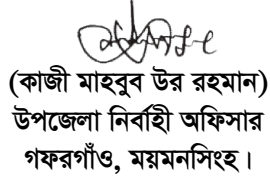 (কাজী মাহবুব উর রহমান)
উপজেলা নির্বাহী অফিসার
গফরগাঁও, ময়মনসিংহ।